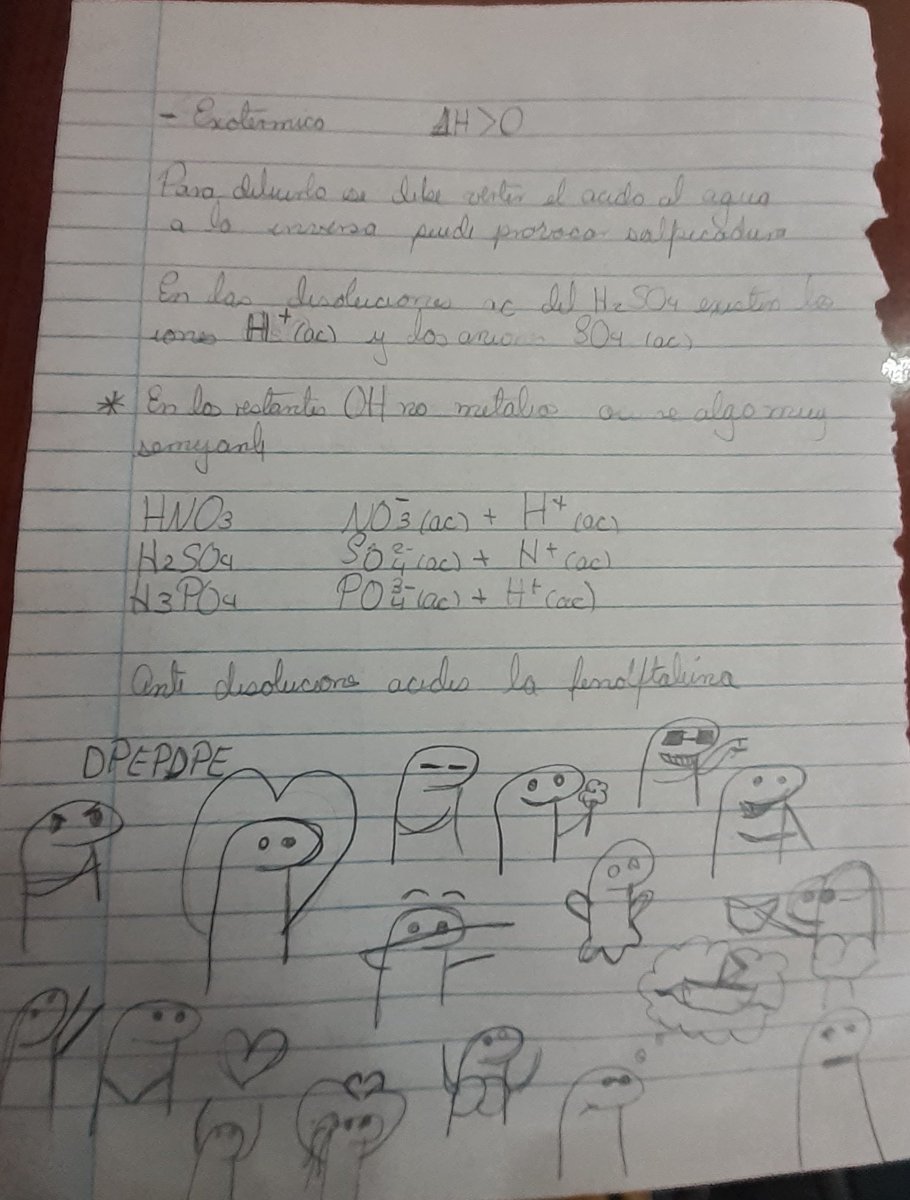 - Exotermico ΔH>0
Para diluirlo se debe vertir el acido al agua
a la inversa puede provocar salpicadura
En las disoluciones ac del H₂SO₄ existen los
iones H⁺(ac) y los SO₄ (ac)
* En los restantes OH no metalico algo muy
HNO₃ NO₃⁻(ac) + H⁺(ac)
H₂SO₄ SO₄²⁻(ac) + H⁺(ac)
H₃PO₄ PO₄³⁻(ac) + H⁺(ac)
Ante disoluciones acidas la fenolftaleina
DPEPDPE